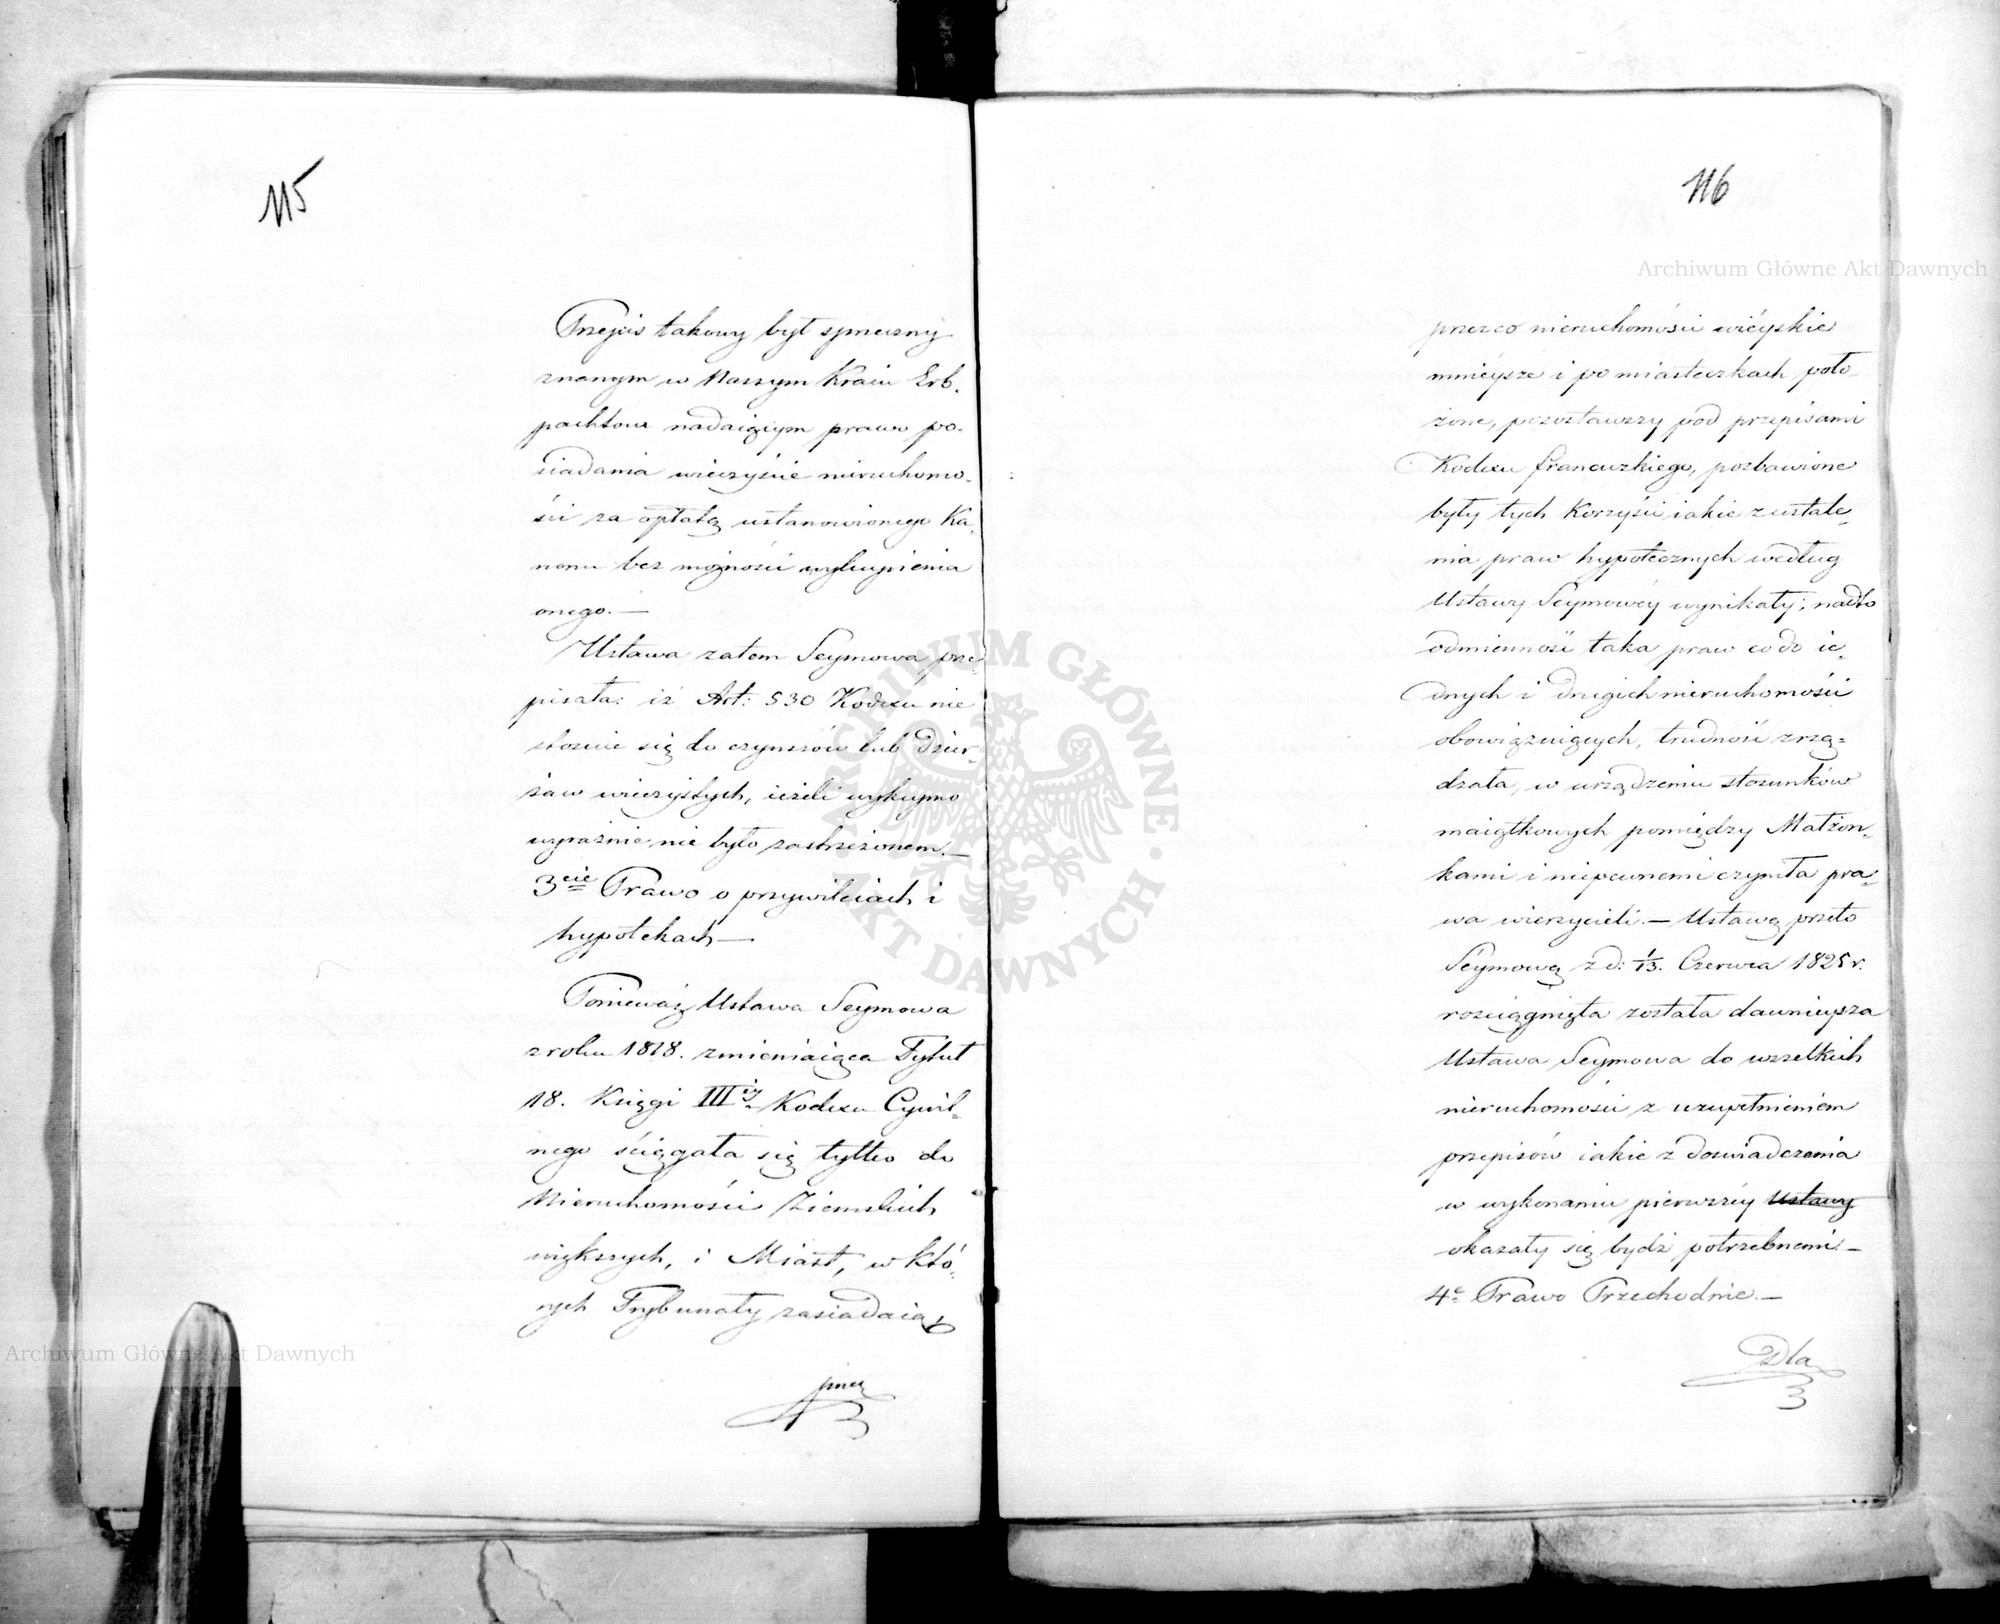 115
Przepis takowy był sprzeczny
znanym w Naszym Kraiu Erb-
pachtom nadaiącym prawo po-
siadania wieczyście nieruchomo-
ści za opłatą ustanowionego Ka-
nonu bez możności wykupienia
onego. —
Ustawa zatem Seymowa prze-
pisała: iż Art: 530 Kodexu nie
stosuie się do czynszów lub dzier-
żaw wieczystych, ieżeli wykupno
wyraźnie nie było zastrzeżonem. —
3cie Prawo o przywileiach i
hypotekach —
Ponieważ Ustawa Seymowa
z roku 1818. zmieniaiąca Tytuł
18. Księgi III iéy Kodexu Cywil-
nego ściągała się tylko do
Nieruchomości Ziemskich
większych, i Miast, w któ-
rych Trybunały zasiadaią,
przez
116
przez co nieruchomości wiéyskie
mnieysze i po miasteczkach poło-
żone, pozostawszy pod przepisami
Kodexu francuzkiego, pozbawione
były tych Korzyści iakie z ustale-
nia praw hypotecznych według
Ustawy Seymowéy wynikały; nadto
odmienność taka praw co do ie-
dnych i drugich nieruchomości
obowiązuiących, trudność zrzą-
dzała, w urządzeniu stosunków
maiątkowych pomiędzy Małżon-
kami i niepewnemi czyniła pra-
wa wierzycieli. — Ustawą przeto
Seymową z d: 1/13. Czerwca 1825 r.
rozciągnięta została dawnieysza
Ustawa Seymowa do wszelkich
nieruchomości z uzupełnieniem
przepisów iakie z doświadczenia
w wykonaniu pierwszéy Ustawy
okazały się bydź potrzebnemi. —
4e Prawo Przechodnie. —
Dla
Archiwum Główne Akt Dawnych
Archiwum Główne Akt Dawnych
ARCHIWUM GŁÓWNE · AKT DAWNYCH ·